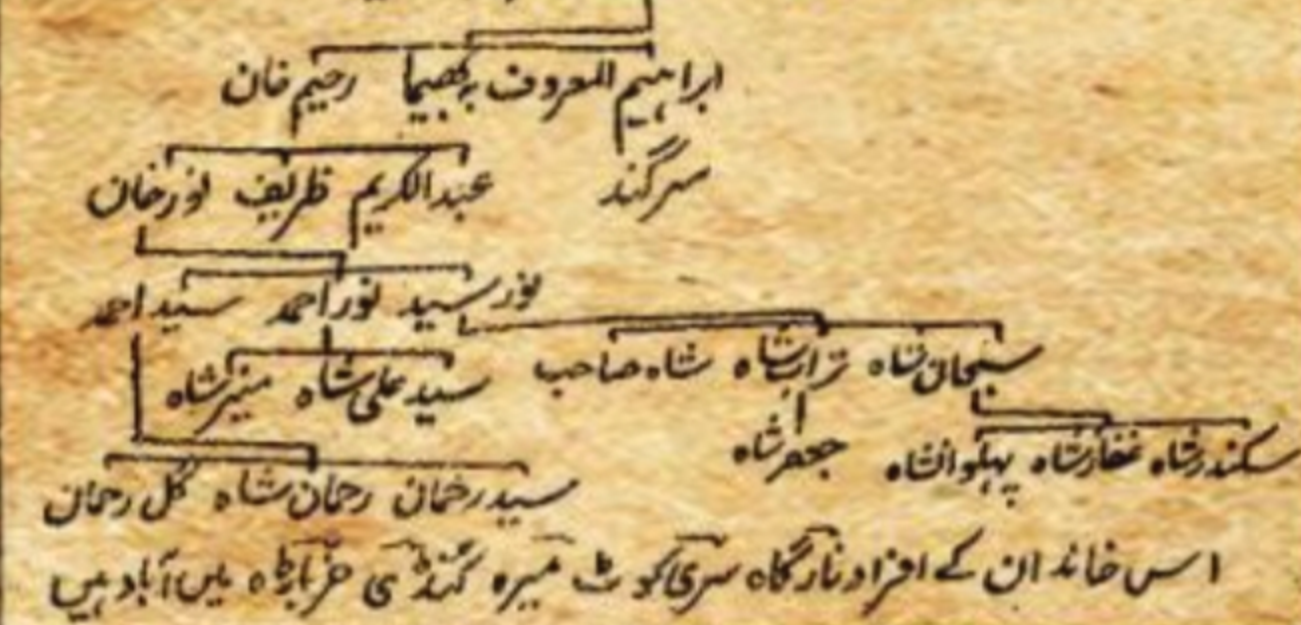 ابراہیم المعروف بہ بھیما رحیم خان
سرگند عبدالکریم ظریف نورخان
نورسید نوراحمد سیداحمد
سبحان شاہ تراب شاہ شاہ صاحب سیدعلی شاہ منیرشاہ
سکندرشاہ غفارشاہ پہلوان شاہ جعفرشاہ
سیدرحمان رحمان شاہ گل رحمان
اس خاندان کے افراد سری کوٹ میرہ میں آباد ہیں